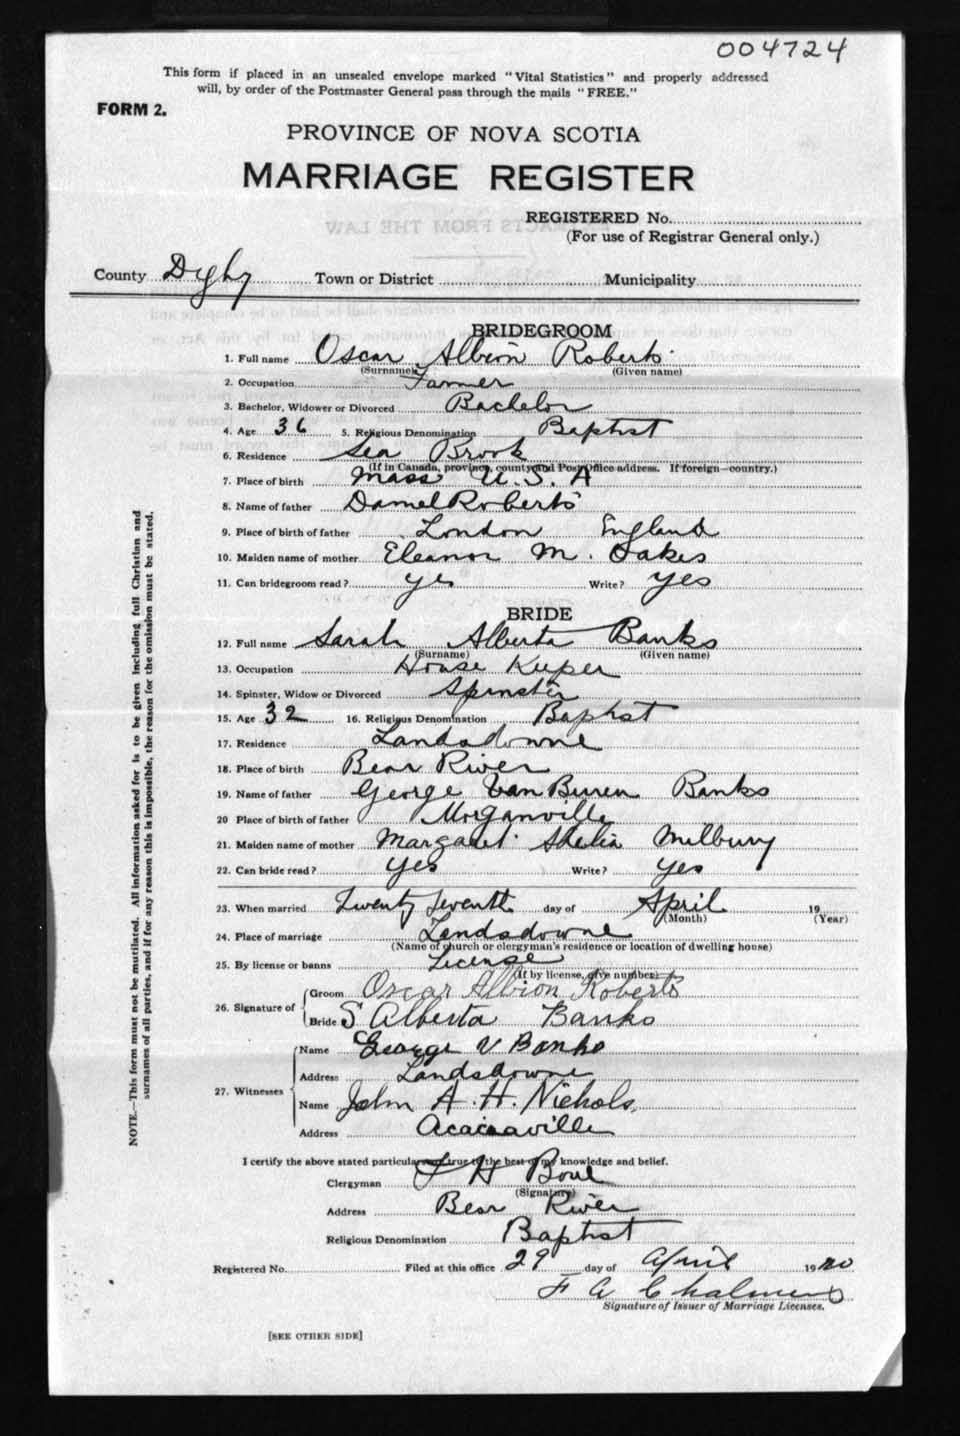 004724
This form if placed in an unsealed envelope marked "Vital Statistics" and properly addressed
will, by order of the Postmaster General pass through the mails "FREE."
FORM 2.
PROVINCE OF NOVA SCOTIA
MARRIAGE REGISTER
REGISTERED No.
(For use of Registrar General only.)
EXTRACTS FROM THE LAW
County Digby Town or District Municipality
BRIDEGROOM
1. Full name Oscar Albion Roberts
(Surname) (Given name)
2. Occupation Farmer
3. Bachelor, Widower or Divorced Bachelor
4. Age 36 5. Religious Denomination Baptist
6. Residence Sea Brook
(If in Canada, province, county and Post Office address. If foreign—country.)
7. Place of birth Mass U.S.A
8. Name of father Daniel Roberts
9. Place of birth of father London England
10. Maiden name of mother Eleanor M. Oakes
11. Can bridegroom read? yes Write? yes
BRIDE
12. Full name Sarah Alberta Banks
(Surname) (Given name)
13. Occupation House Keeper
14. Spinster, Widow or Divorced Spinster
15. Age 32 16. Religious Denomination Baptist
17. Residence Landsdowne
18. Place of birth Bear River
19. Name of father George Van Buren Banks
20 Place of birth of father Morganville
21. Maiden name of mother Margaret Milbury
22. Can bride read? yes Write? yes
23. When married Twenty Seventh day of April 19
(Month) (Year)
24. Place of marriage Landsdowne
(Name of church or clergyman's residence or location of dwelling house)
25. By license or banns License
(If by license, give number)
26. Signature of Groom Oscar Albion Roberts
Bride S Alberta Banks
27. Witnesses Name George V Banks
Address Landsdowne
Name John A. H. Nichols
Address Acaciaville
I certify the above stated particulars are true to the best of my knowledge and belief.
Clergyman H
(Signature)
Address Bear River
Religious Denomination Baptist
Registered No. Filed at this office 29 day of April 1920
F A Chalmers
Signature of Issuer of Marriage Licenses.
[SEE OTHER SIDE]
NOTE.—This form must not be mutilated. All information asked for is to be given including full Christian and
surnames of all parties, and if for any reason this is impossible, the reason for the omission must be stated.